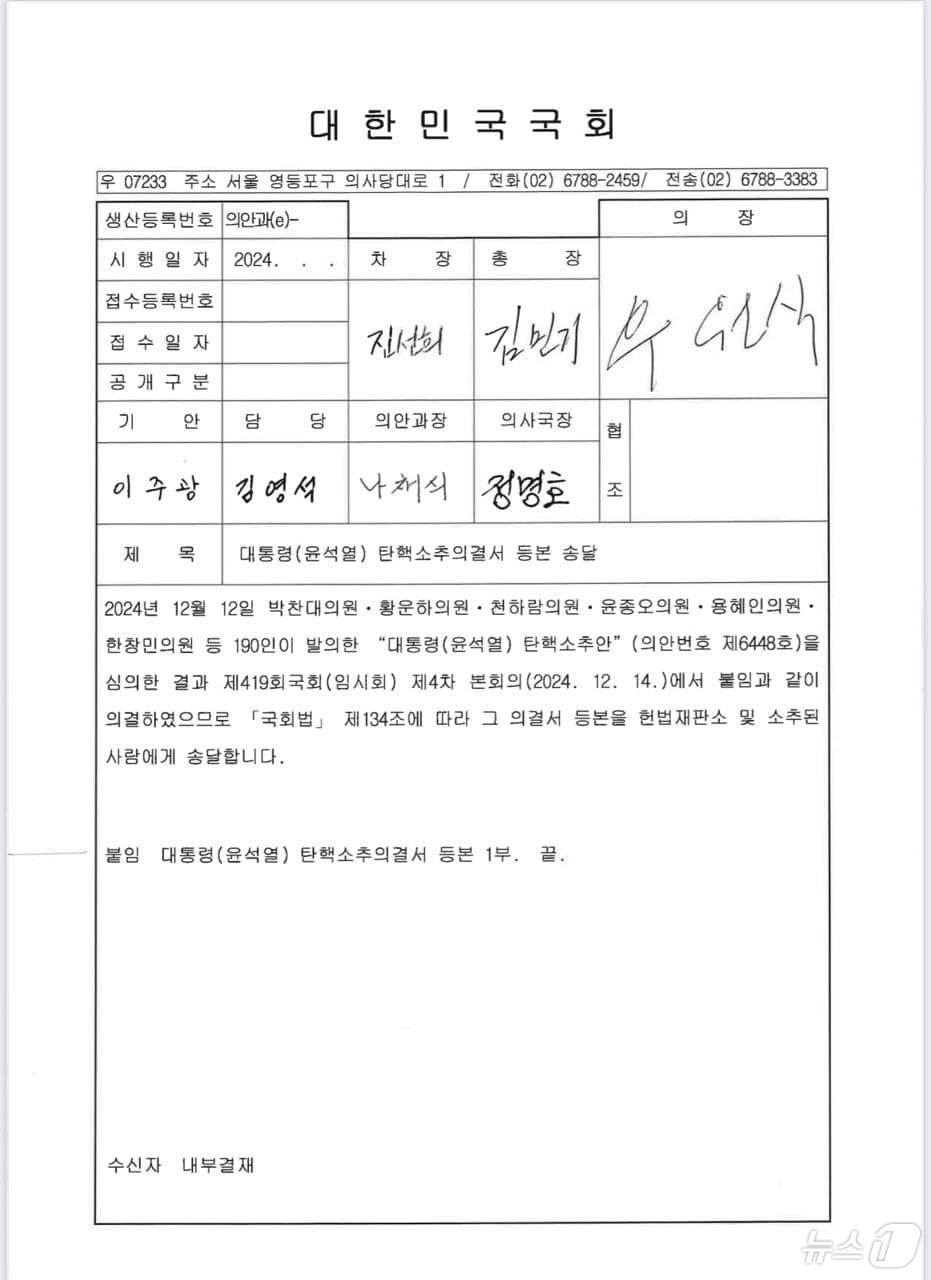 대한민국국회
우 07233 주소 서울 영등포구 의사당대로 1 / 전화(02) 6788-2459/ 전송(02) 6788-3383
생산등록번호 의안과(e)- 의 장
시행일자 2024. . . 차 장 총 장
접수등록번호
진선희 김민기 우원식
접수일자
공개구분
기 안 담 당 의안과장 의사국장 협
조
이주광 김영석 나채식 정명호
제 목 대통령(윤석열) 탄핵소추의결서 등본 송달
2024년 12월 12일 박찬대의원·황운하의원·천하람의원·윤종오의원·용혜인의원·
한창민의원 등 190인이 발의한 “대통령(윤석열) 탄핵소추안”(의안번호 제6448호)을
심의한 결과 제419회국회(임시회) 제4차 본회의(2024. 12. 14.)에서 붙임과 같이
의결하였으므로 「국회법」 제134조에 따라 그 의결서 등본을 헌법재판소 및 소추된
사람에게 송달합니다.
붙임 대통령(윤석열) 탄핵소추의결서 등본 1부. 끝.
수신자 내부결재
뉴스1